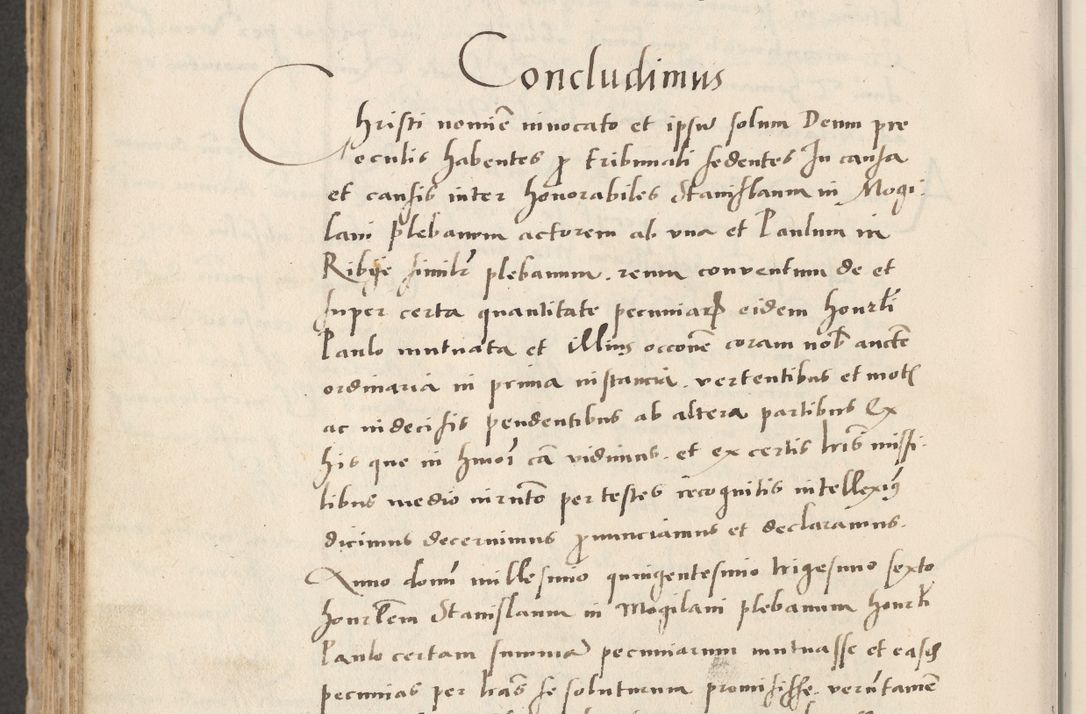 Concludimus
Christi nomīe invocato et ipsū solum Deum pre
oculis habentes ꝓ tribunali sedentes In causa
et causis inter honorabiles Stanislaum in Mogi
lani plebanum actorem ab una et Paulum in
Ribÿe similr̄ plebanum. reum conventum de et
super certa quantitate pecuniarꝝ eidem honrlī
Paulo mutuata et illius occōnē coram nob̄ aucte
ordinaria in prima instancia. vertentibus et mot
ac indecisis pendentibus ab altera partibus Ex
his que in hmōi cā vidimus. et ex certis lrīs missi
libus medio iurūto per testes recognitis intelleximꝰ
dicimus decernimus ꝓnunciamus et declaramus.
Anno domī millesimo quingentesimo trigesimo sexto
honrlem Stanislaum in Mogilani plebanum honrlī
Paulo certam summā pecuniarum mutuasse et easdē
pecunias per lrās se soluturum promisisse. verūtamē